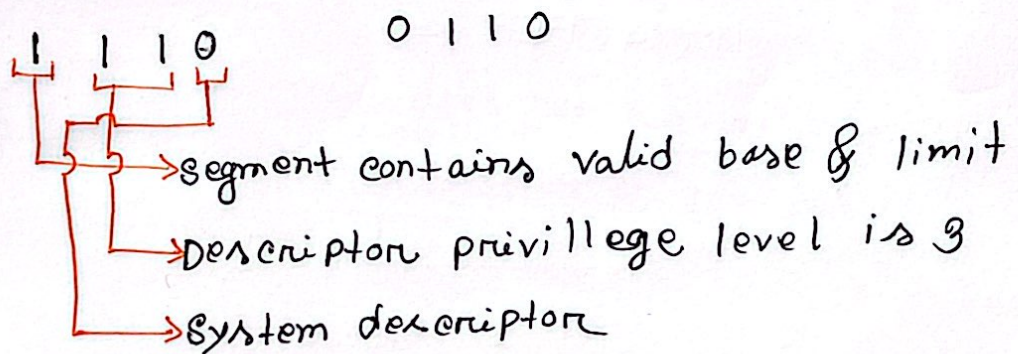 1 1 1 0 0 1 1 0
segment contains valid base & limit
Descriptor privillege level is 3
System descriptor